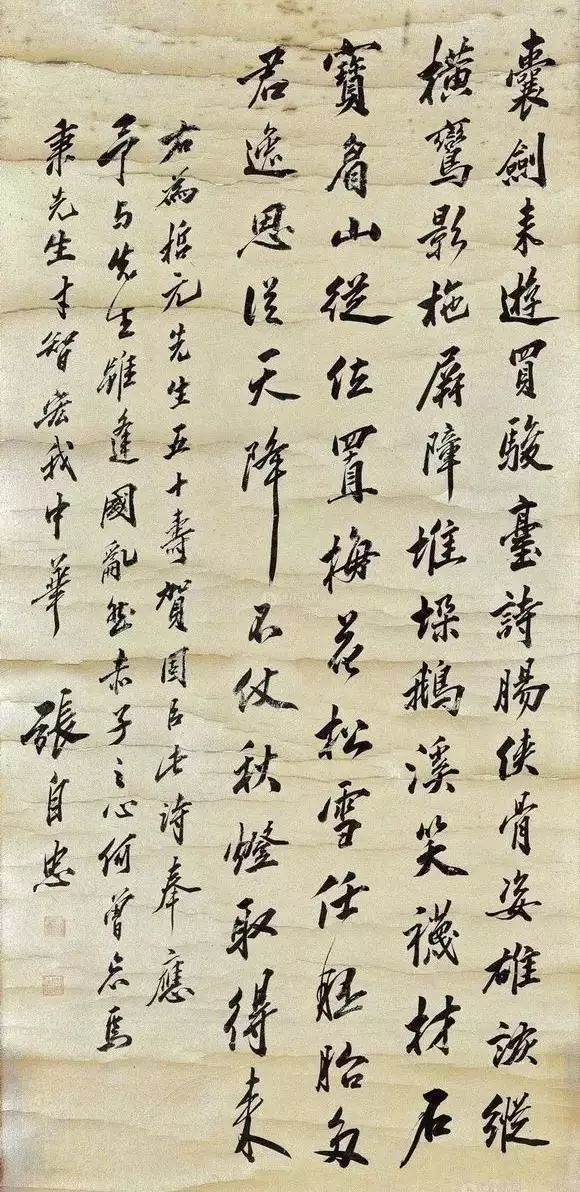 囊劍来遊買駿臺詩腸侠骨姿雄詼縱
橫鸞影拖屏障堆垜鵝溪笑襪材石
寶眉山從位置梅花松雪任胚胎多
君逸思従天降不仗秋燈取得来
右為哲元先生五十壽賀因占此詩奉應
予与先生雖逢國亂然赤子之心何曾忘焉
秉先生才智宏我中華
張自忠